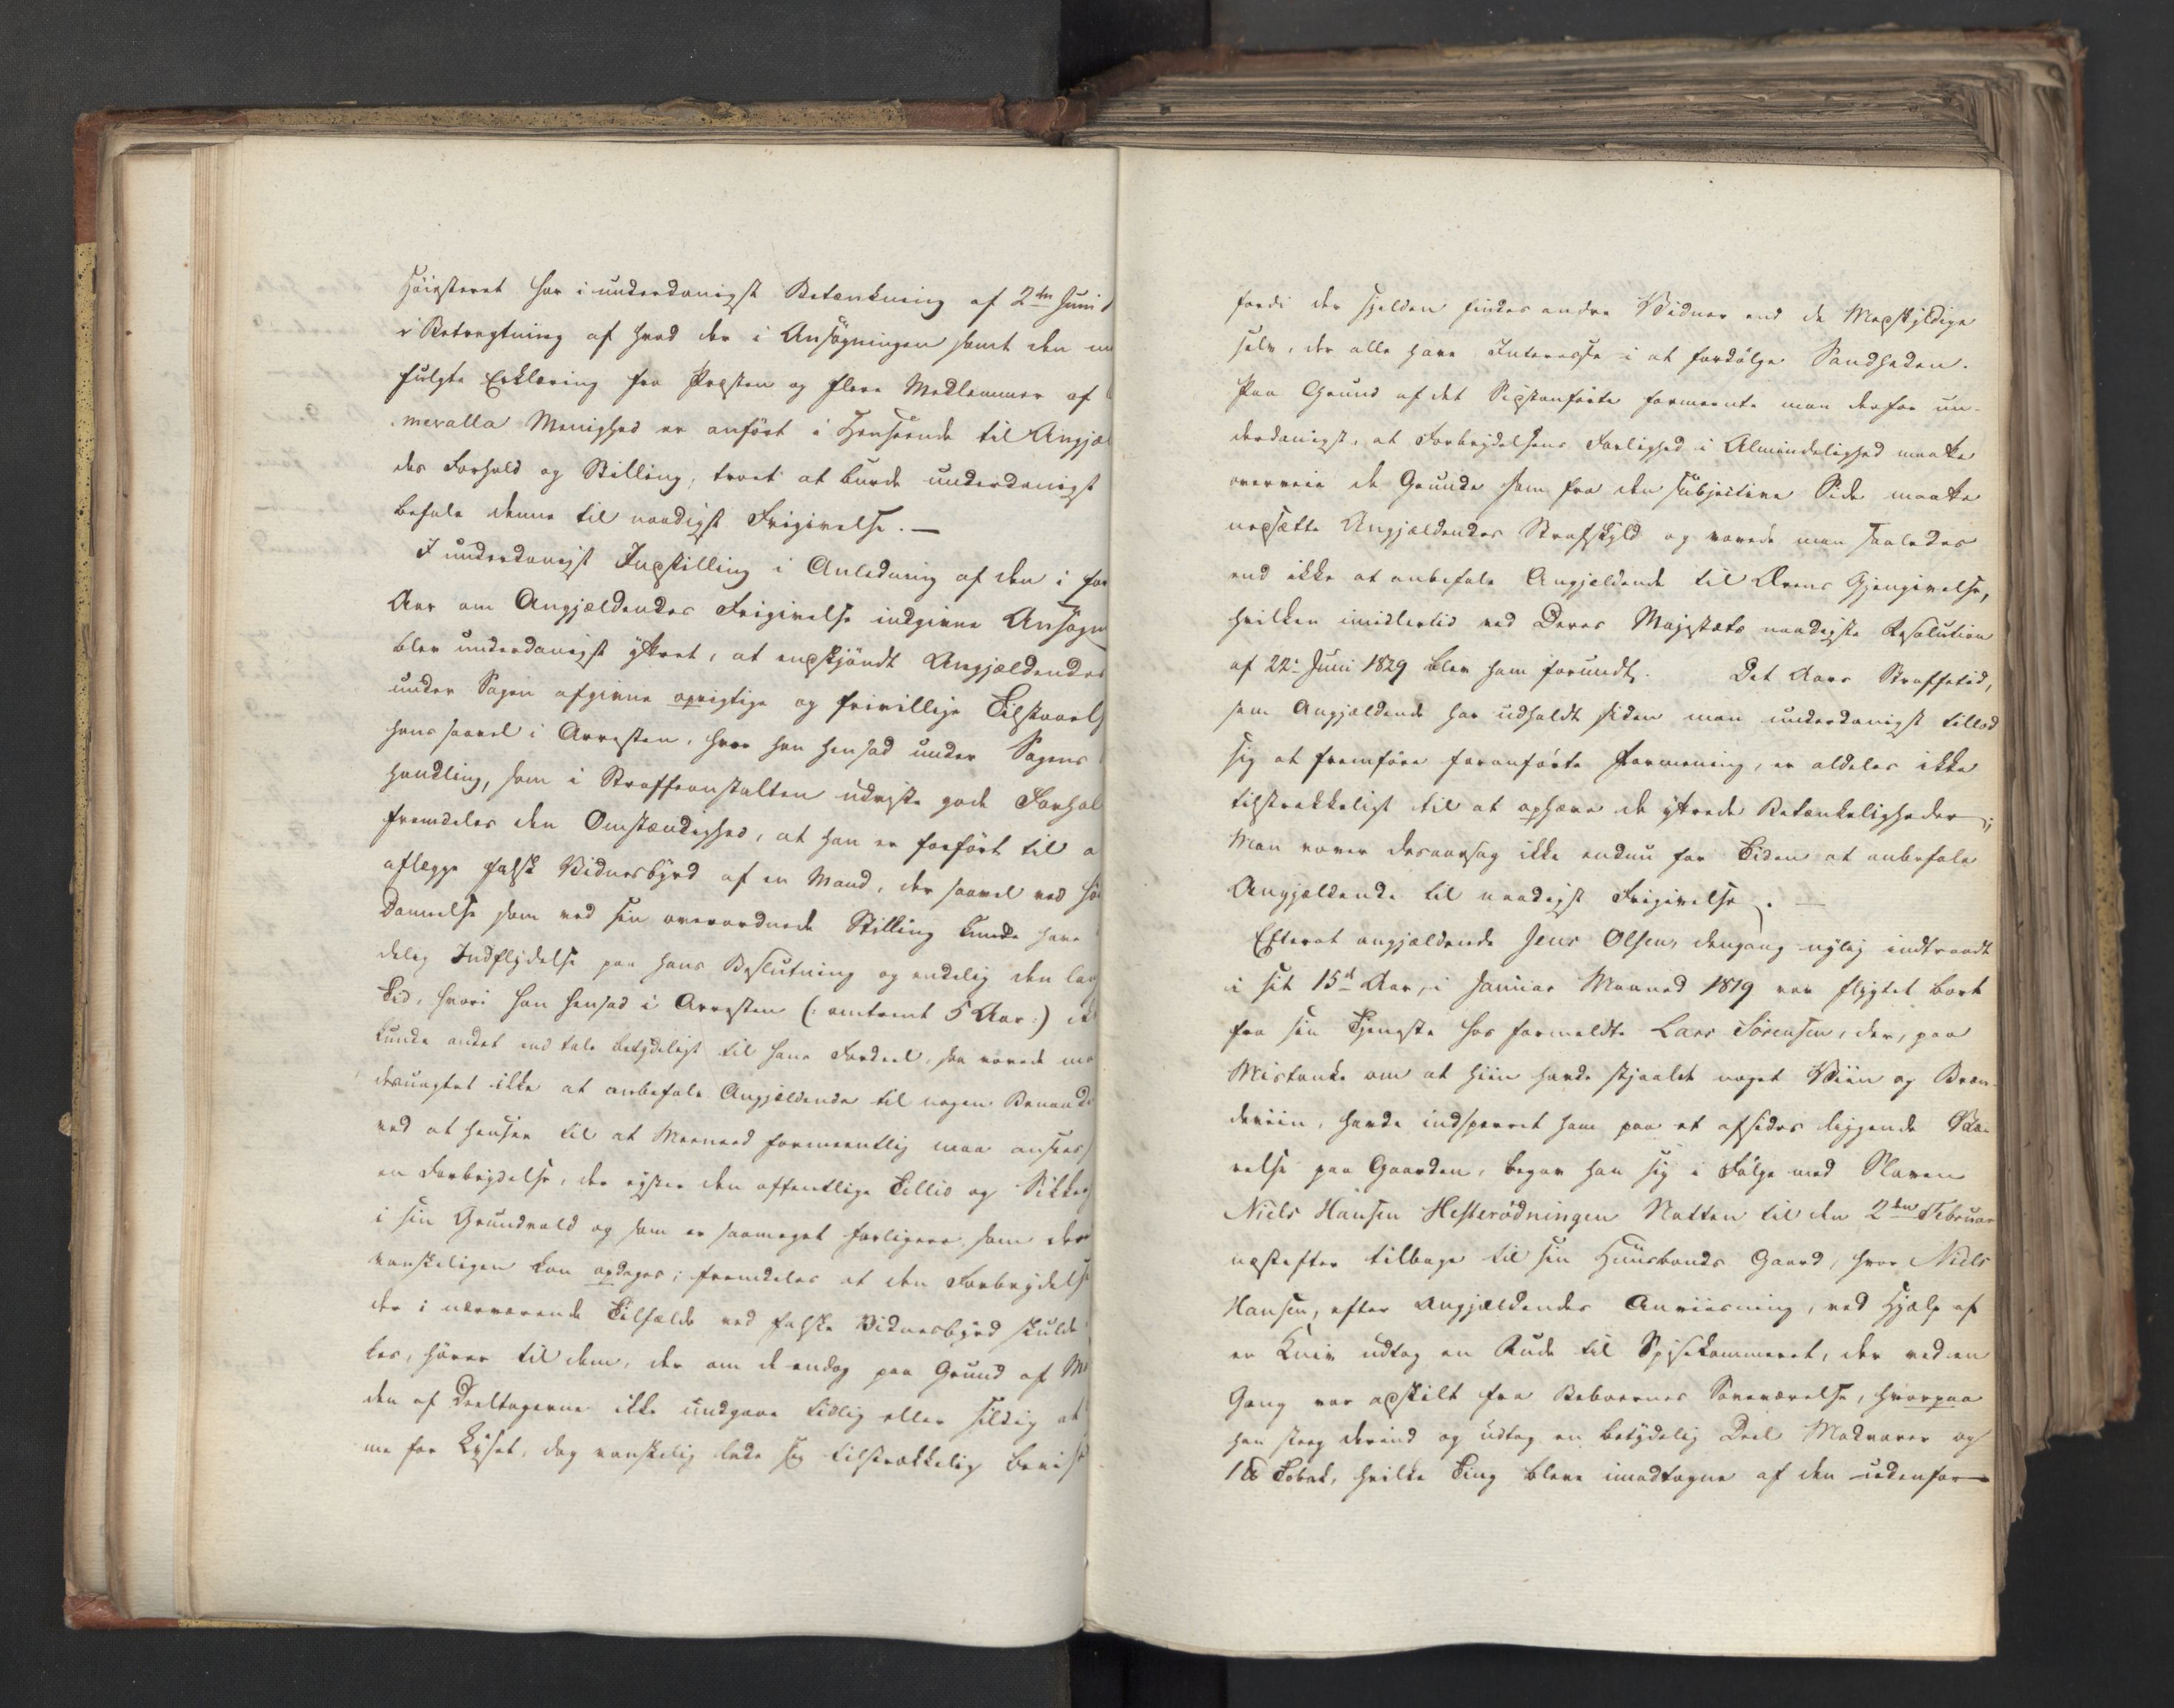 Høiesteret har i underdanigst Betænkning af 2den Juni
i Betragtning af hvad der i Ansøgningen samt den
fulgte Erklæring fra Præsten og flere Medlemmer af
meralla Menighed er anført i Henseende til Angjæl
des Forhold og Stilling, troet at burde underdanigst
befale denne til naadigst Frigivelse. —
I underdanigst Indstilling i Anledning af den i for
Aar om Angjældendes Frigivelse indgivne Ansøgn
blev underdanigst yttret, at endskjøndt Angjældendes
under Sagen afgivne oprigtige og frivillige Tilstaaels
hans saavel i Arresten, hvor han hensad under Sagens
handling, som i Straffeanstalten udviste gode Forhol
fremdeles den Omstændighed, at han er forført til a
aflægge falsk Vidnesbyrd af en Mand, der saavel ved sin
Dannelse som ved sin overordnede Stilling kunde have
delig Indflydelse paa hans Beslutning og endelig den lan
Tid, hvori han hensad i Arresten (: omtrent 5 Aar :) ei
kunde andet end tale betydeligt til hans Fordeel, saa vovede ma
desuagtet ikke at anbefale Angjældende til nogen Benaad
ved at hensee til at Meeneed formeentlig maa ansees s
en Forbrydelse, der ryster den offentlige Tillid og Sikker
i sin Grundvold og som er saameget farligere, som den
vanskeligen kan opdages; fremdeles at den Forbrydelse
der i nærværende Tilfælde ved falske Vidnesbyrd skulde
les, hører til dem, der om de endog paa Grund af M
den af Deeltagerne ikke undgaae tidlig eller sildig at
me for Lyset, dog vanskelig lade sig tilstrækkelig bevis
fordi der sjelden findes andre Vidner end de Medskyldige
selv, der alle have Interesse i at fordølge Sandheden.
Paa Grund af det Sidstanførte formeente man derfor un-
derdanigst, at Forbrydelsens Farlighed i Almindelighed maatte
overveie de Grunde som fra den subjective Side maatte
nedsætte Angjældendes Strafskyld og vovede man saaledes
end ikke at anbefale Angjældende til Ærens Gjengivelse,
hvilken imidlertid ved Deres Majestæts naadigste Resolution
af 22de Juni 1829 blev ham forundt. Det Aars Straffetid,
som Angjældende har udholdt siden man underdanigst tillod
sig at fremføre foranførte Formening, er aldeles ikke
tilstrækkeligt til at ophæve de yttrede Betænkeligheder;
Man vover desaarsag ikke endnu for Tiden at anbefale
Angjældende til naadigst Frigivelse. —
Efterat angjældende Jens Olsen, dengang nylig indtraadt
i sit 15de Aar, i Januar Maaned 1819 var flygtet bort
fra sin Tjeneste hos formeldte Lars Sørensen, der, paa
Mistanke om at hiin havde stjaalet noget Viin og Bræn-
deviin, havde indsperret ham paa et afsides liggende Væ-
relse paa Gaarden, begav han sig i Følge med Slaven
Niels Hansen Hesterødningen Natten til den 2den Februar
næstefter tilbage til sin Huusbonds Gaard, hvor Niels
Hansen, efter Angjældendes Anviisning, ved Hjælp af
en Kniv udtog en Rude til Spisekammeret, der ved en
Gang var adskilt fra Beboernes Soveværelse, hvorpaa
han steeg derind og udtog en betydelig Deel Madvarer og
1 ℔ Tobak, hvilke Ting bleve imodtagne af den udenfor